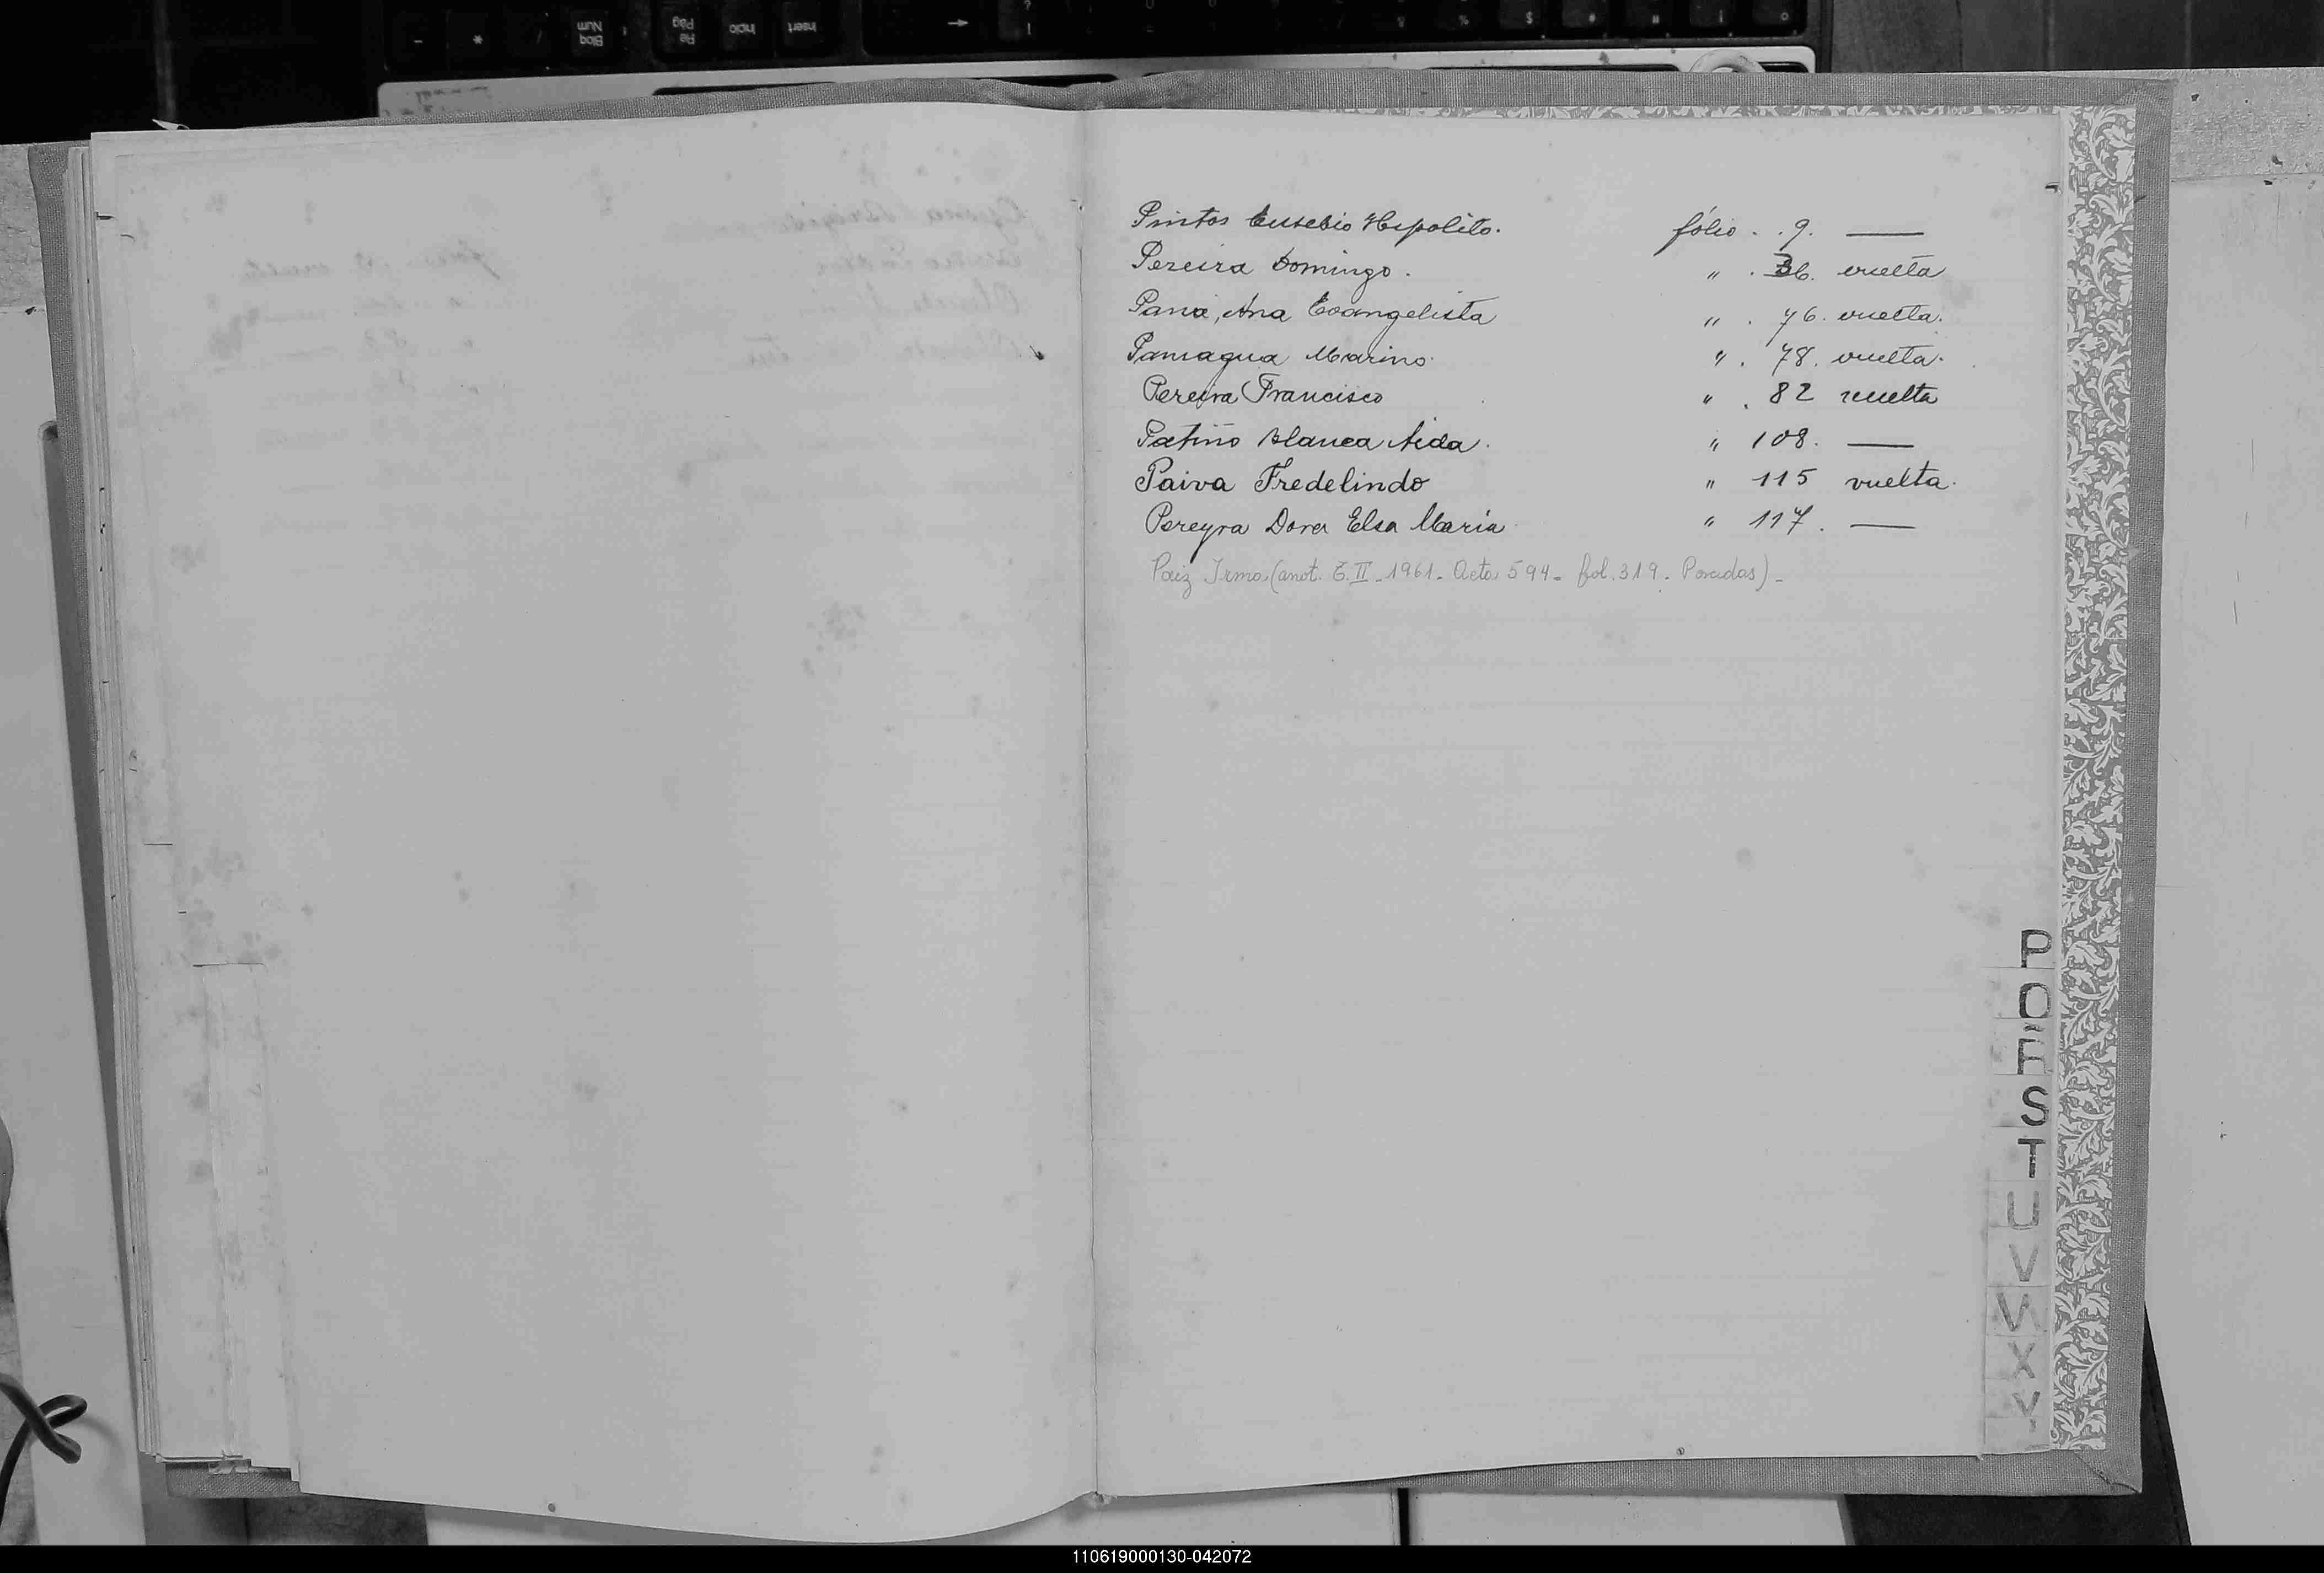 Pintos Eusebio Hipolito. fólio . . 9. —
Pereira Domingo. " . 36. vuelta
Paiva, Ana Evangelista " . 76. vuelta.
Paniagua Marino. " . 78. vuelta.
Pereira Francisco " . 82 vuelta
Patiño Blanca Aida. " 108. —
Paiva Fredelindo " 115 vuelta.
Pereyra Dora Elsa Maria " 117. —
Paiz Irma (anot. T. II - 1961 - Acta 594 - fol. 319 - Posadas) -
P
Q
R
S
T
U
V
W
X
Y
110619000130-042072